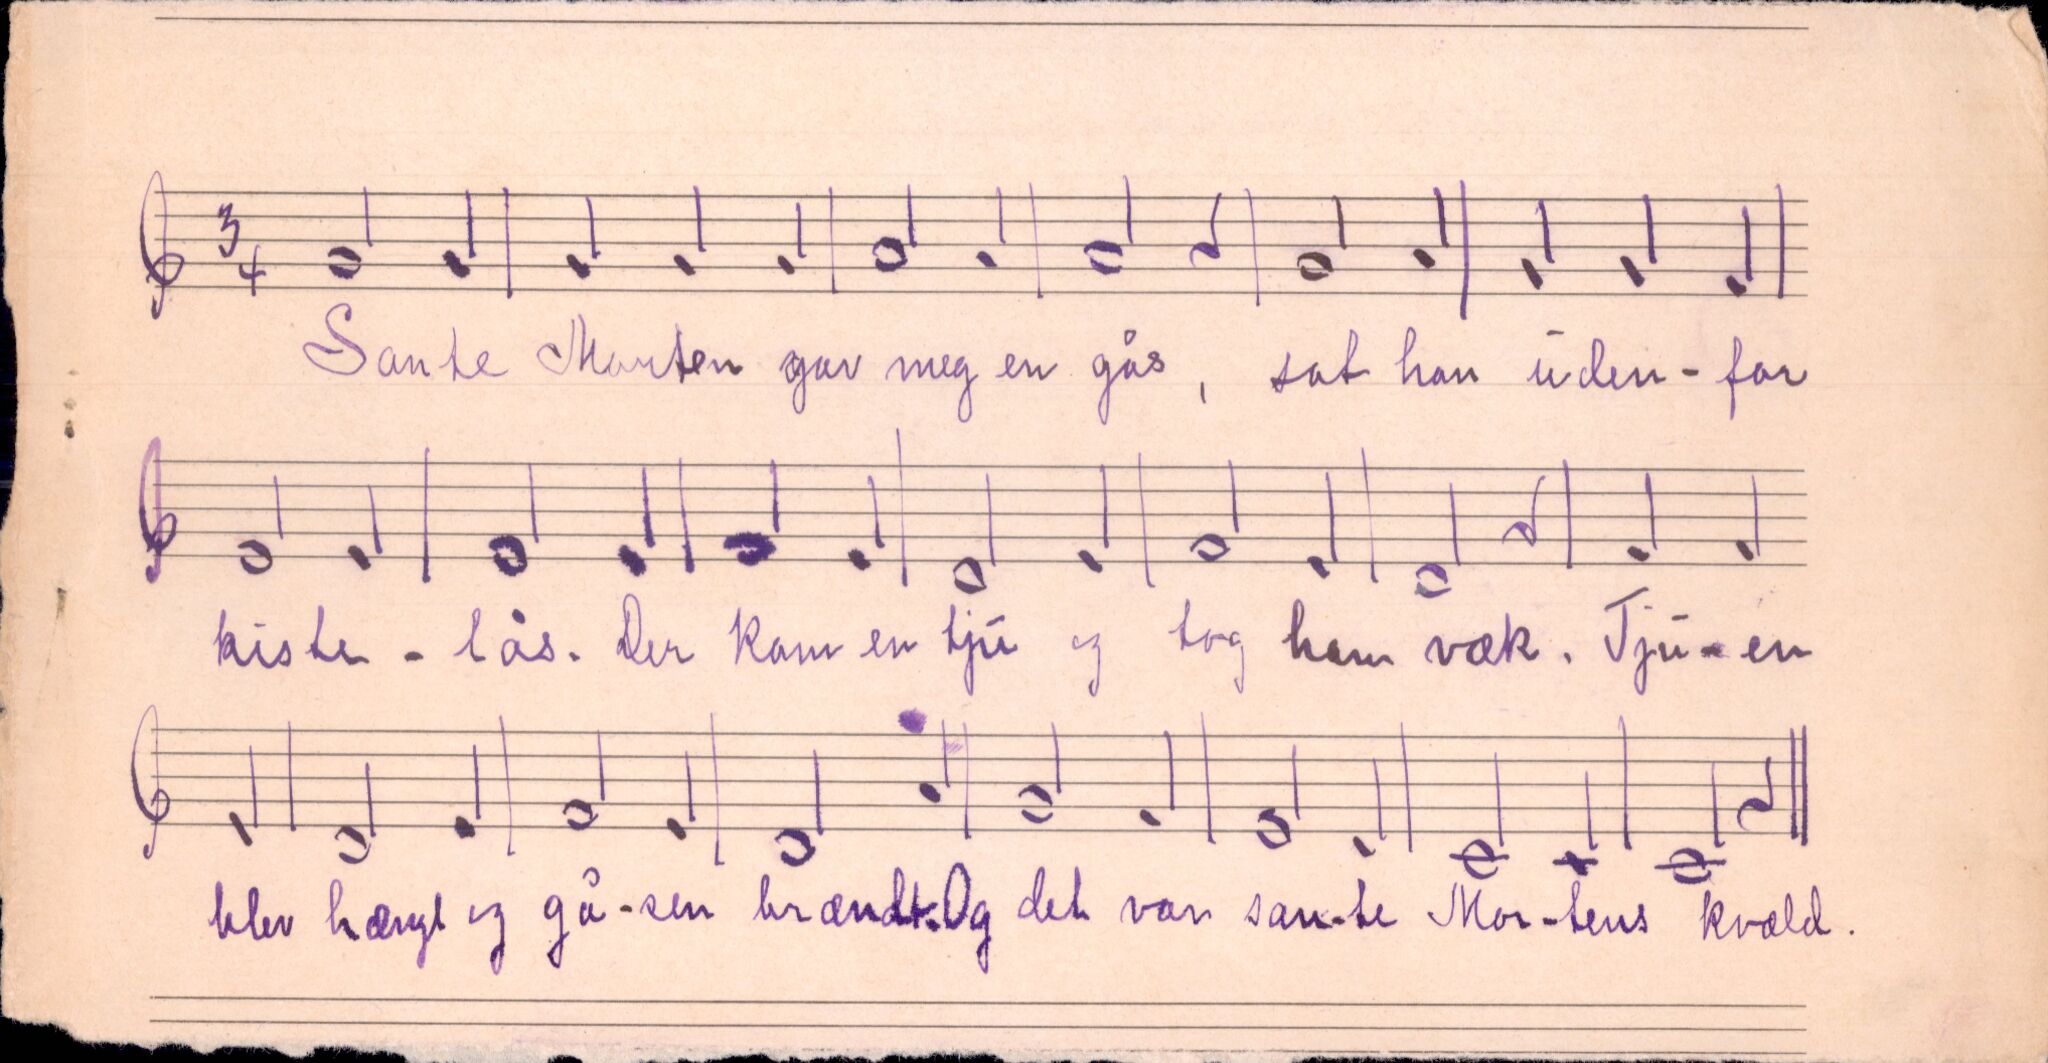 3
4
Sante Morten gav meg en gås, sat han uden-for
kiste-lås. Der kam en tjū og tog ham væk. Tjū-en
blev hængt og gå-sen brændt. Og det var san-te Mor-tens kvæld.